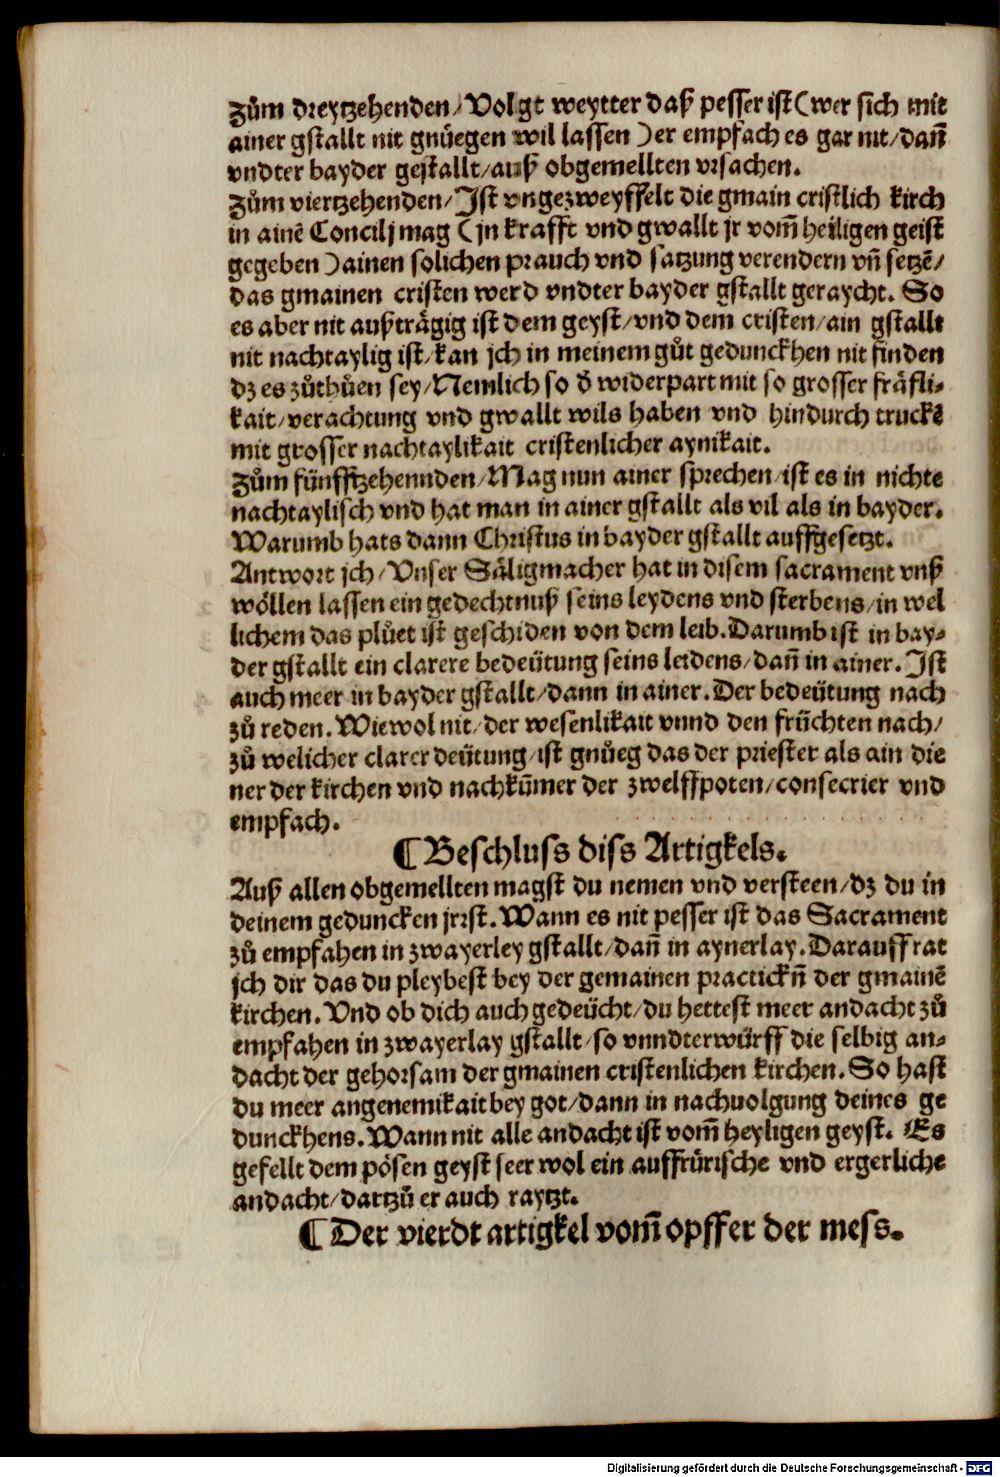 Zům dreytzehenden/ Volgt weytter daß pesser ist (wer sich mit
ainer gstallt nit gnůegen wil lassen) er empfach es gar nit/dañ
vndter bayder gestallt/auß obgemellten vrsachen.
Zům viertzehenden/ Ist vngezweyffelt die gmain cristlich kirch
in ainē Concilj mag (jn krafft vnd gwallt jr vom̄ heiligen geist
gegeben) ainen solichen prauch vnd satzung verendern vñ setzē/
das gmainen cristen werd vndter bayder gstallt geraycht. So
es aber nit außträgig ist dem geyst/vnd dem cristen/ain gstallt
nit nachtaylig ist/kan jch in meinem gůt gedunckhen nit finden
dz es zůthůen sey/Nemlich so d̄ widerpart mit so grosser fräfli-
kait/verachtung vnd gwallt wils haben vnd hindurch truckē
mit grosser nachtaylikait cristenlicher aynikait.
Zům fünfftzehennden/Mag nun ainer sprechen/ist es in nichte
nachtaylisch vnd hat man in ainer gstallt als vil als in bayder.
Warumb hats dann Christus in bayder gstallt auffgesetzt.
Antwort jch/Vnser Säligmacher hat in disem sacrament vnß
wöllen lassen ein gedechtnuß seins leydens vnd sterbens/in wel
lichem das plůet ist geschiden von dem leib. Darumb ist in bay-
der gstallt ein clarere bedeütung seins leidens/dañ in ainer. Ist
auch meer in bayder gstallt/dann in ainer. Der bedeütung nach
zů reden. Wiewol nit/der wesenlikait vnnd den früchten nach/
zů welicher clarer deütung/ist gnůeg das der priester als ain die
ner der kirchen vnd nachkūmer der zwelffpoten/consecrier vnd
empfach.
¶ Beschluss diss Artigkels.
Auß allen obgemellten magst du nemen vnd versteen/dz du in
deinem geduncken jrrst. Wann es nit pesser ist das Sacrament
zů empfahen in zwayerley gstallt/dañ in aynerlay. Darauff rat
jch dir das du pleybest bey der gemainen practickñ der gmainē
kirchen. Vnd ob dich auch gedeücht/du hettest meer andacht zů
empfahen in zwayerlay gstallt/so vnndterwürff die selbig an-
dacht der gehorsam der gmainen cristenlichen kirchen. So hast
du meer angenemikait bey got/dann in nachuolgung deines ge
dunckhens. Wann nit alle andacht ist vom̄ heyligen geyst. Es
gefellt dem pösen geyst seer wol ein auffrürische vnd ergerliche
andacht/dartzů er auch raytzt.
¶ Der vierdt artigkel vom̄ opffer der mess.
Digitalisierung gefördert durch die Deutsche Forschungsgemeinschaft - DFG